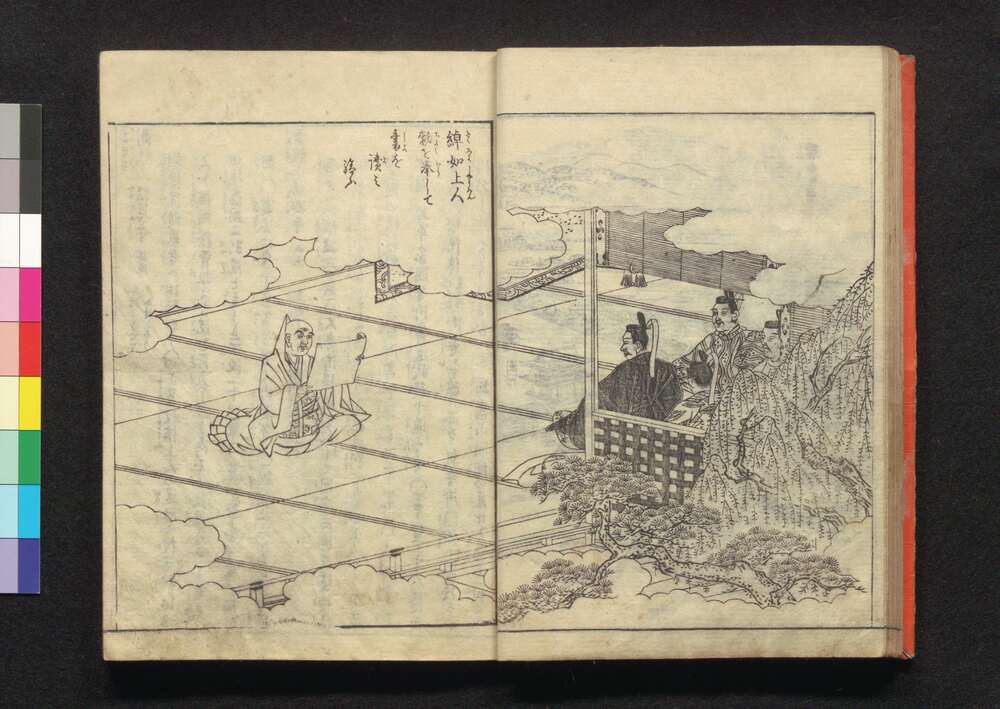 綽如上人
勅を奉して
書を
讀み
給ふ